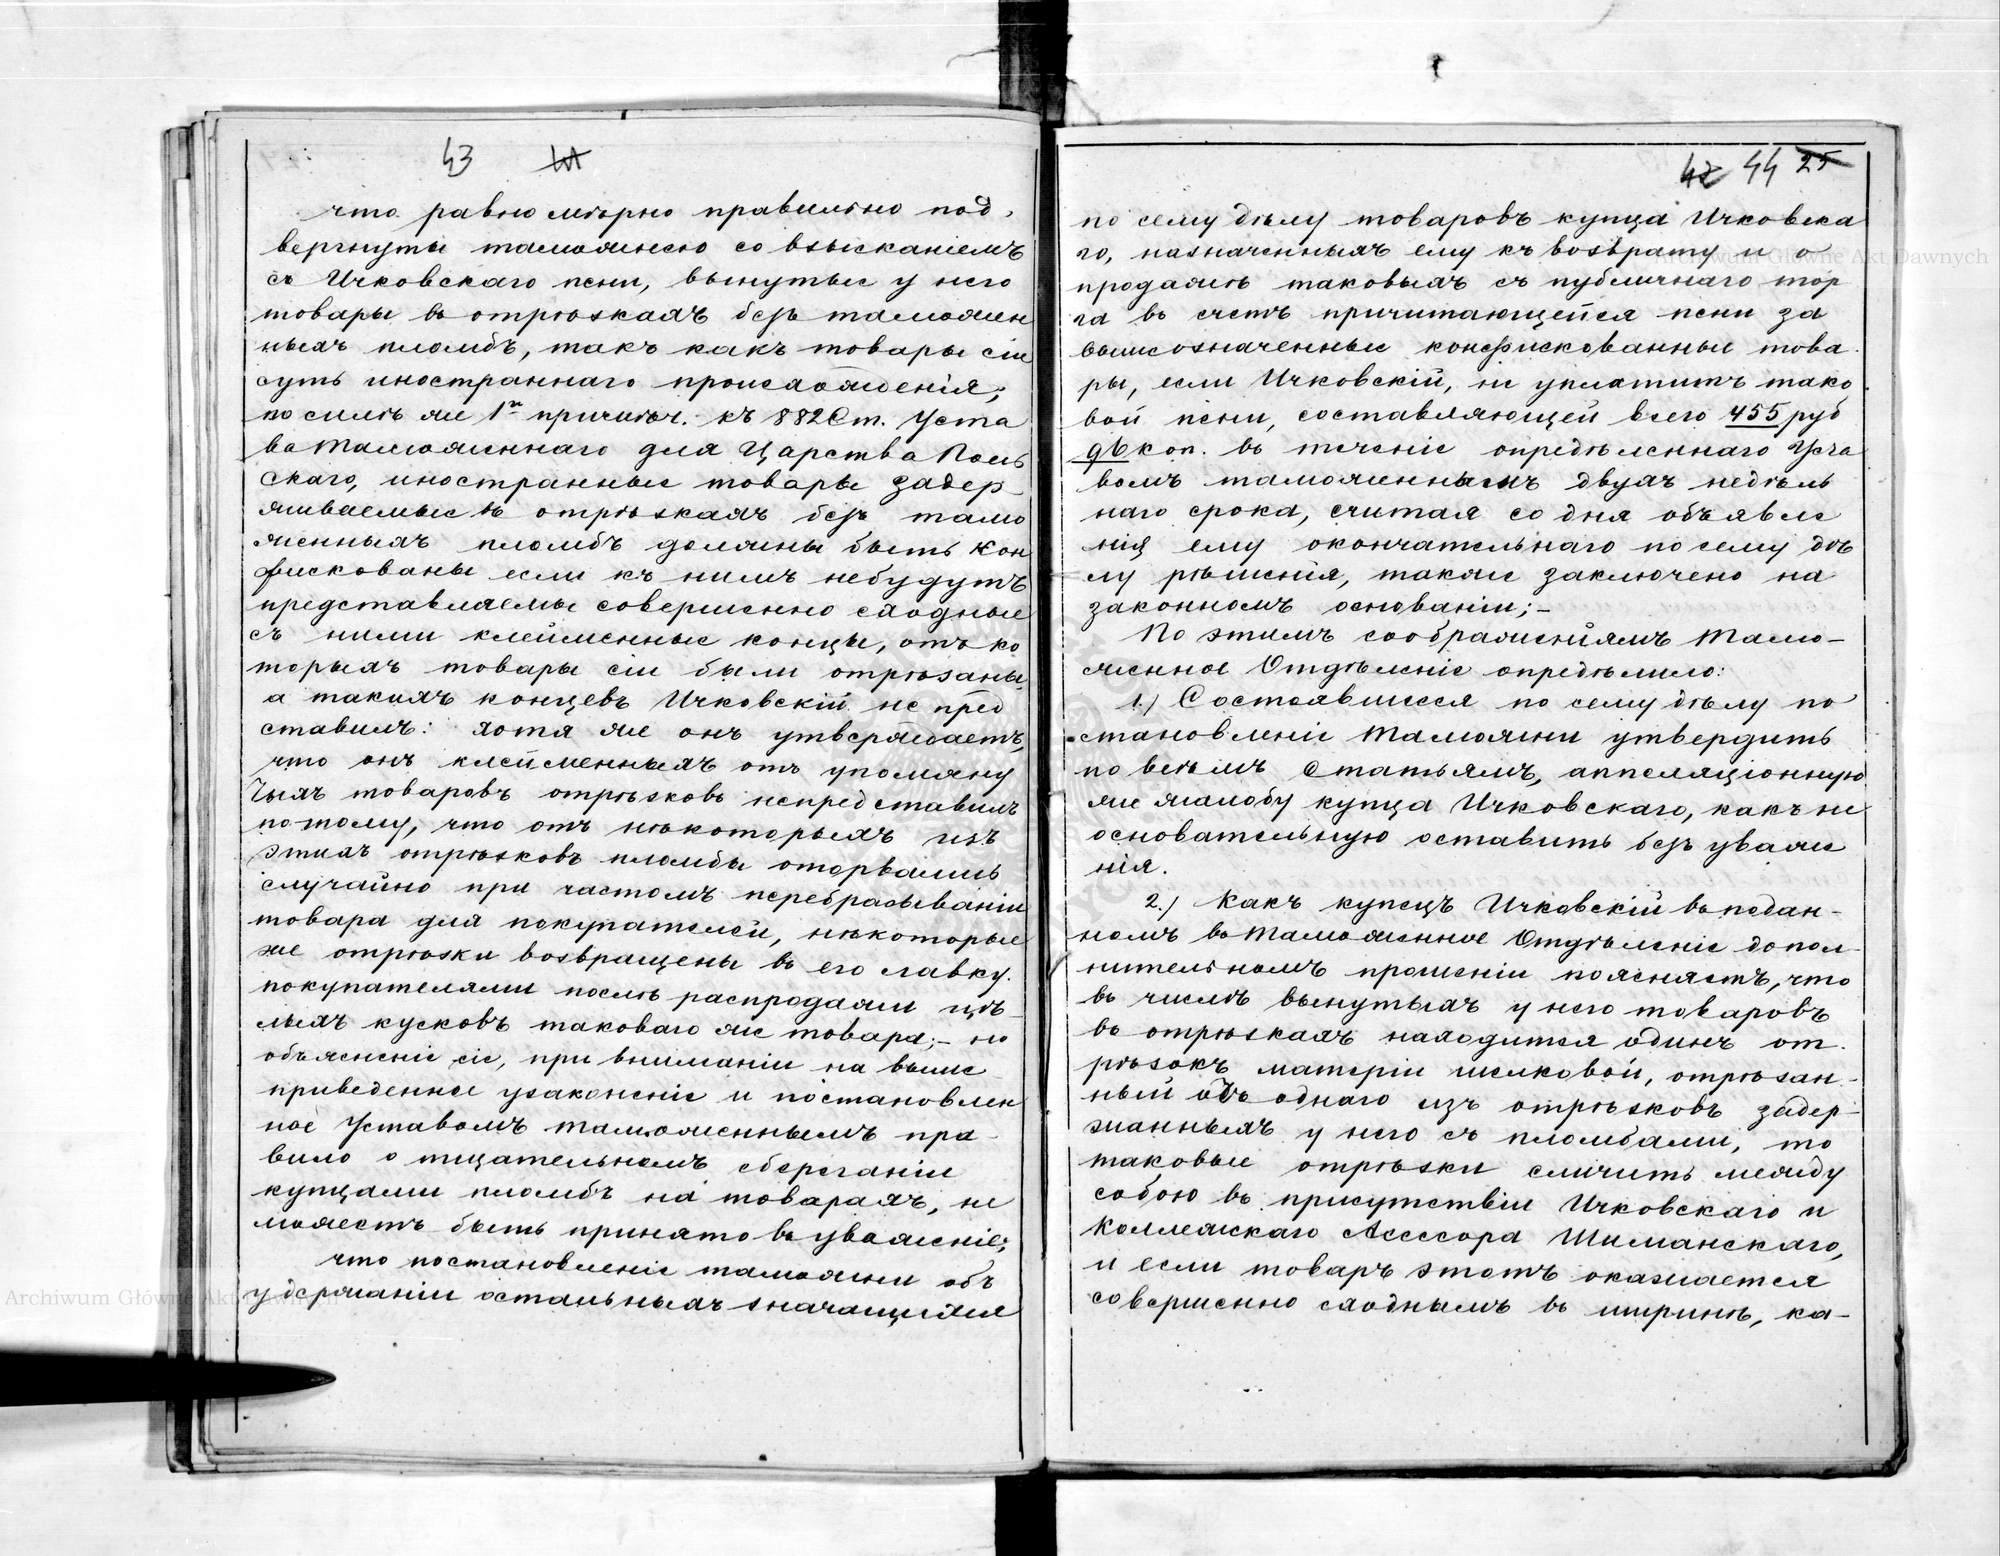 43
что равномѣрно правильно под,
вергнуты таможнею со взысканіемъ
съ Ичковскаго пени, вынутые у него
товары въ отрѣзкахъ безъ таможен
ныхъ пломбъ, такъ какъ товары сіи
суть иностраннаго происхожденія;
по силѣ же 1й примѣч. къ 882 Ст. Уста
ва Таможеннаго для Царства Поль
скаго, иностранные товары задер
живаемые въ отрѣзкахъ безъ тамо
женныхъ пломбъ должны быть кон
фискованы если къ нимъ небудутъ
представляемы совершенно сходные
съ ними клейменные концы, отъ ко
торыхъ товары сіи были отрѣзаны,
а такихъ концевъ Ичковскій не пред
ставилъ: хотя же онъ утверждаетъ,
что онъ клейменныхъ отъ упомяну
тыхъ товаровъ отрѣзковъ непредставилъ
потому, что отъ нѣкоторыхъ изъ
этихъ отрѣзковъ пломбы оторвались
случайно при частомъ перебрасываніи
товара для покупателей, нѣкоторые
же отрѣзки возвращены въ его лавку
покупателями послѣ распродажи цѣ
лыхъ кусковъ таковаго же товара;- но
объясненіе сіе, при вниманіи на выше
приведенное узаконеніе и постановлен
ное Уставомъ таможеннымъ пра-
вило о тщательномъ сбереганіи
купцами пломбъ на товарахъ, не
можетъ быть принято въ уваженіе;
что постановленіе таможни объ
удержаніи остальныхъ значащихся
42 44 25
по сему дѣлу товаровъ купца Ичковска
го, назначенныхъ ему къ возврату и о
продажѣ таковыхъ съ публичнаго тор
га въ счетъ причитающейся пени за
вышеозначенные конфискованные това.
ры, если Ичковскій, не уплатитъ тако
вой пени, составляющей всего 455 руб
96 коп. въ теченіе опредѣленнаго Уста
вомъ таможеннымъ двухъ недѣль
наго срока, считая со дня объявле
нія ему окончательнаго по сему дѣ
лу рѣшенія, также заключено на
законномъ основаніи;-
По этимъ соображеніямъ Тамо-
женное Отдѣленіе опредѣлило:
1.) Состоявшееся по сему дѣлу по
становленіе Таможни утвердить
по всѣмъ Статьямъ, аппеляціонную
же жалобу купца Ичковскаго, какъ не
основательную оставить безъ уваже
нія.
2.) Какъ купецъ Ичковскій въ подан-
номъ въ Таможенное Отдѣленіе допол-
нительномъ прошеніи поясняетъ, что
въ числѣ вынутыхъ у него товаровъ
въ отрѣзкахъ находится одинъ от-
рѣзокъ матеріи шелковой, отрѣзан-
ный отъ однаго изъ отрѣзковъ задер-
жанныхъ у него съ пломбами, то
таковые отрѣзки сличить между
собою въ присутствіи Ичковскаго и
Коллежскаго Асессора Шиманскаго,
и если товаръ этотъ окажется
совершенно сходнымъ въ ширинѣ, ка-
Archiwum Główne Akt Dawnych
Archiwum Główne Akt Dawnych